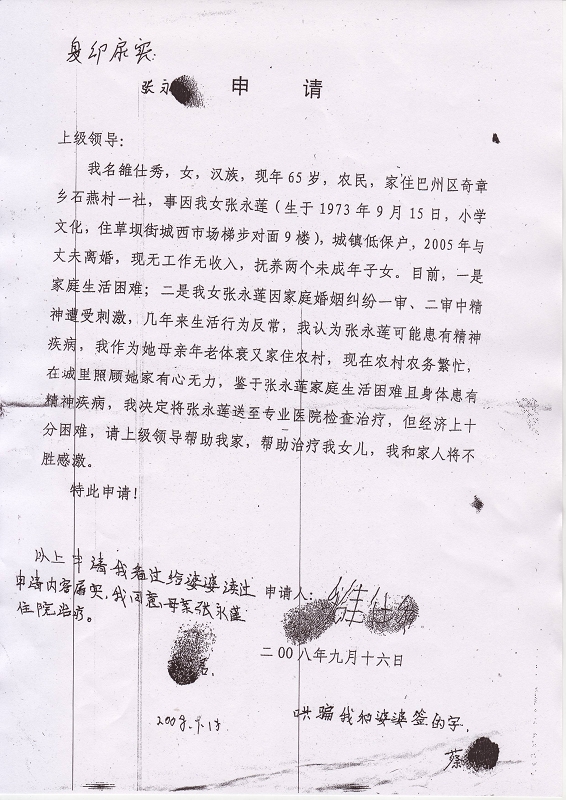 复印属实.
张永
申　请
上级领导：
我名雒仕秀，女，汉族，现年 65 岁，农民，家住巴州区奇章
乡石燕村一社，事因我女张永莲（生于 1973 年 9 月 15 日，小学
文化，住草坝街城西市场梯步对面 9 楼），城镇低保户，2005 年与
丈夫离婚，现无工作无收入，抚养两个未成年子女。目前，一是
家庭生活困难；二是我女张永莲因家庭婚姻纠纷一审、二审中精
神遭受刺激，几年来生活行为反常，我认为张永莲可能患有精神
疾病，我作为她母亲年老体衰又家住农村，现在农村农务繁忙，
在城里照顾她家有心无力，鉴于张永莲家庭生活困难且身体患有
精神疾病，我决定将张永莲送至专业医院检查治疗，但经济上十
分困难，请上级领导帮助我家，帮助治疗我女儿，我和家人将不
胜感激。
特此申请！
以上申请我看过给婆婆读过
申请内容属实，我同意母亲张永莲
住院治疗。
申请人：雒仕
二〇〇八年九月十六日
哄骗我和婆婆签的字.
蔡